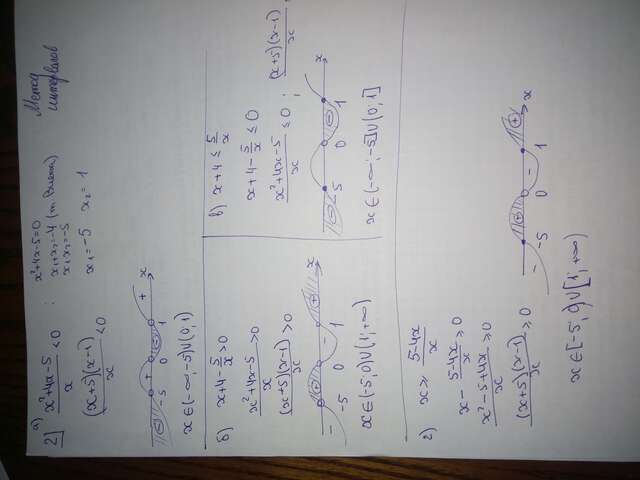 2] a) (x²+4x-5)/x < 0 ; x²+4x-5=0
x₁+x₂=-4 (т. Виета)
x₁x₂=-5
((x+5)(x-1))/x < 0 x₁=-5 x₂=1
Метод
интервалов
- + - + x
-5 0 1
x∈(-∞,-5)∪(0,1)
б) x+4-5/x>0
(x²+4x-5)/x >0
((x+5)(x-1))/x >0
- + - + x
-5 0 1
x∈(-5,0)∪(1;+∞)
в) x+4 ≤ 5/x
x+4-5/x ≤ 0
(x²+4x-5)/x ≤ 0 ; ((x+5)(x-1))/x
- - x
-5 0 1
x∈(-∞;-5]∪(0,1]
г) x ≥ (5-4x)/x
x - (5-4x)/x ≥ 0
(x²-5+4x)/x ≥ 0
((x+5)(x-1))/x ≥ 0
- + - + x
-5 0 1
x∈[-5;0)∪[1;+∞)